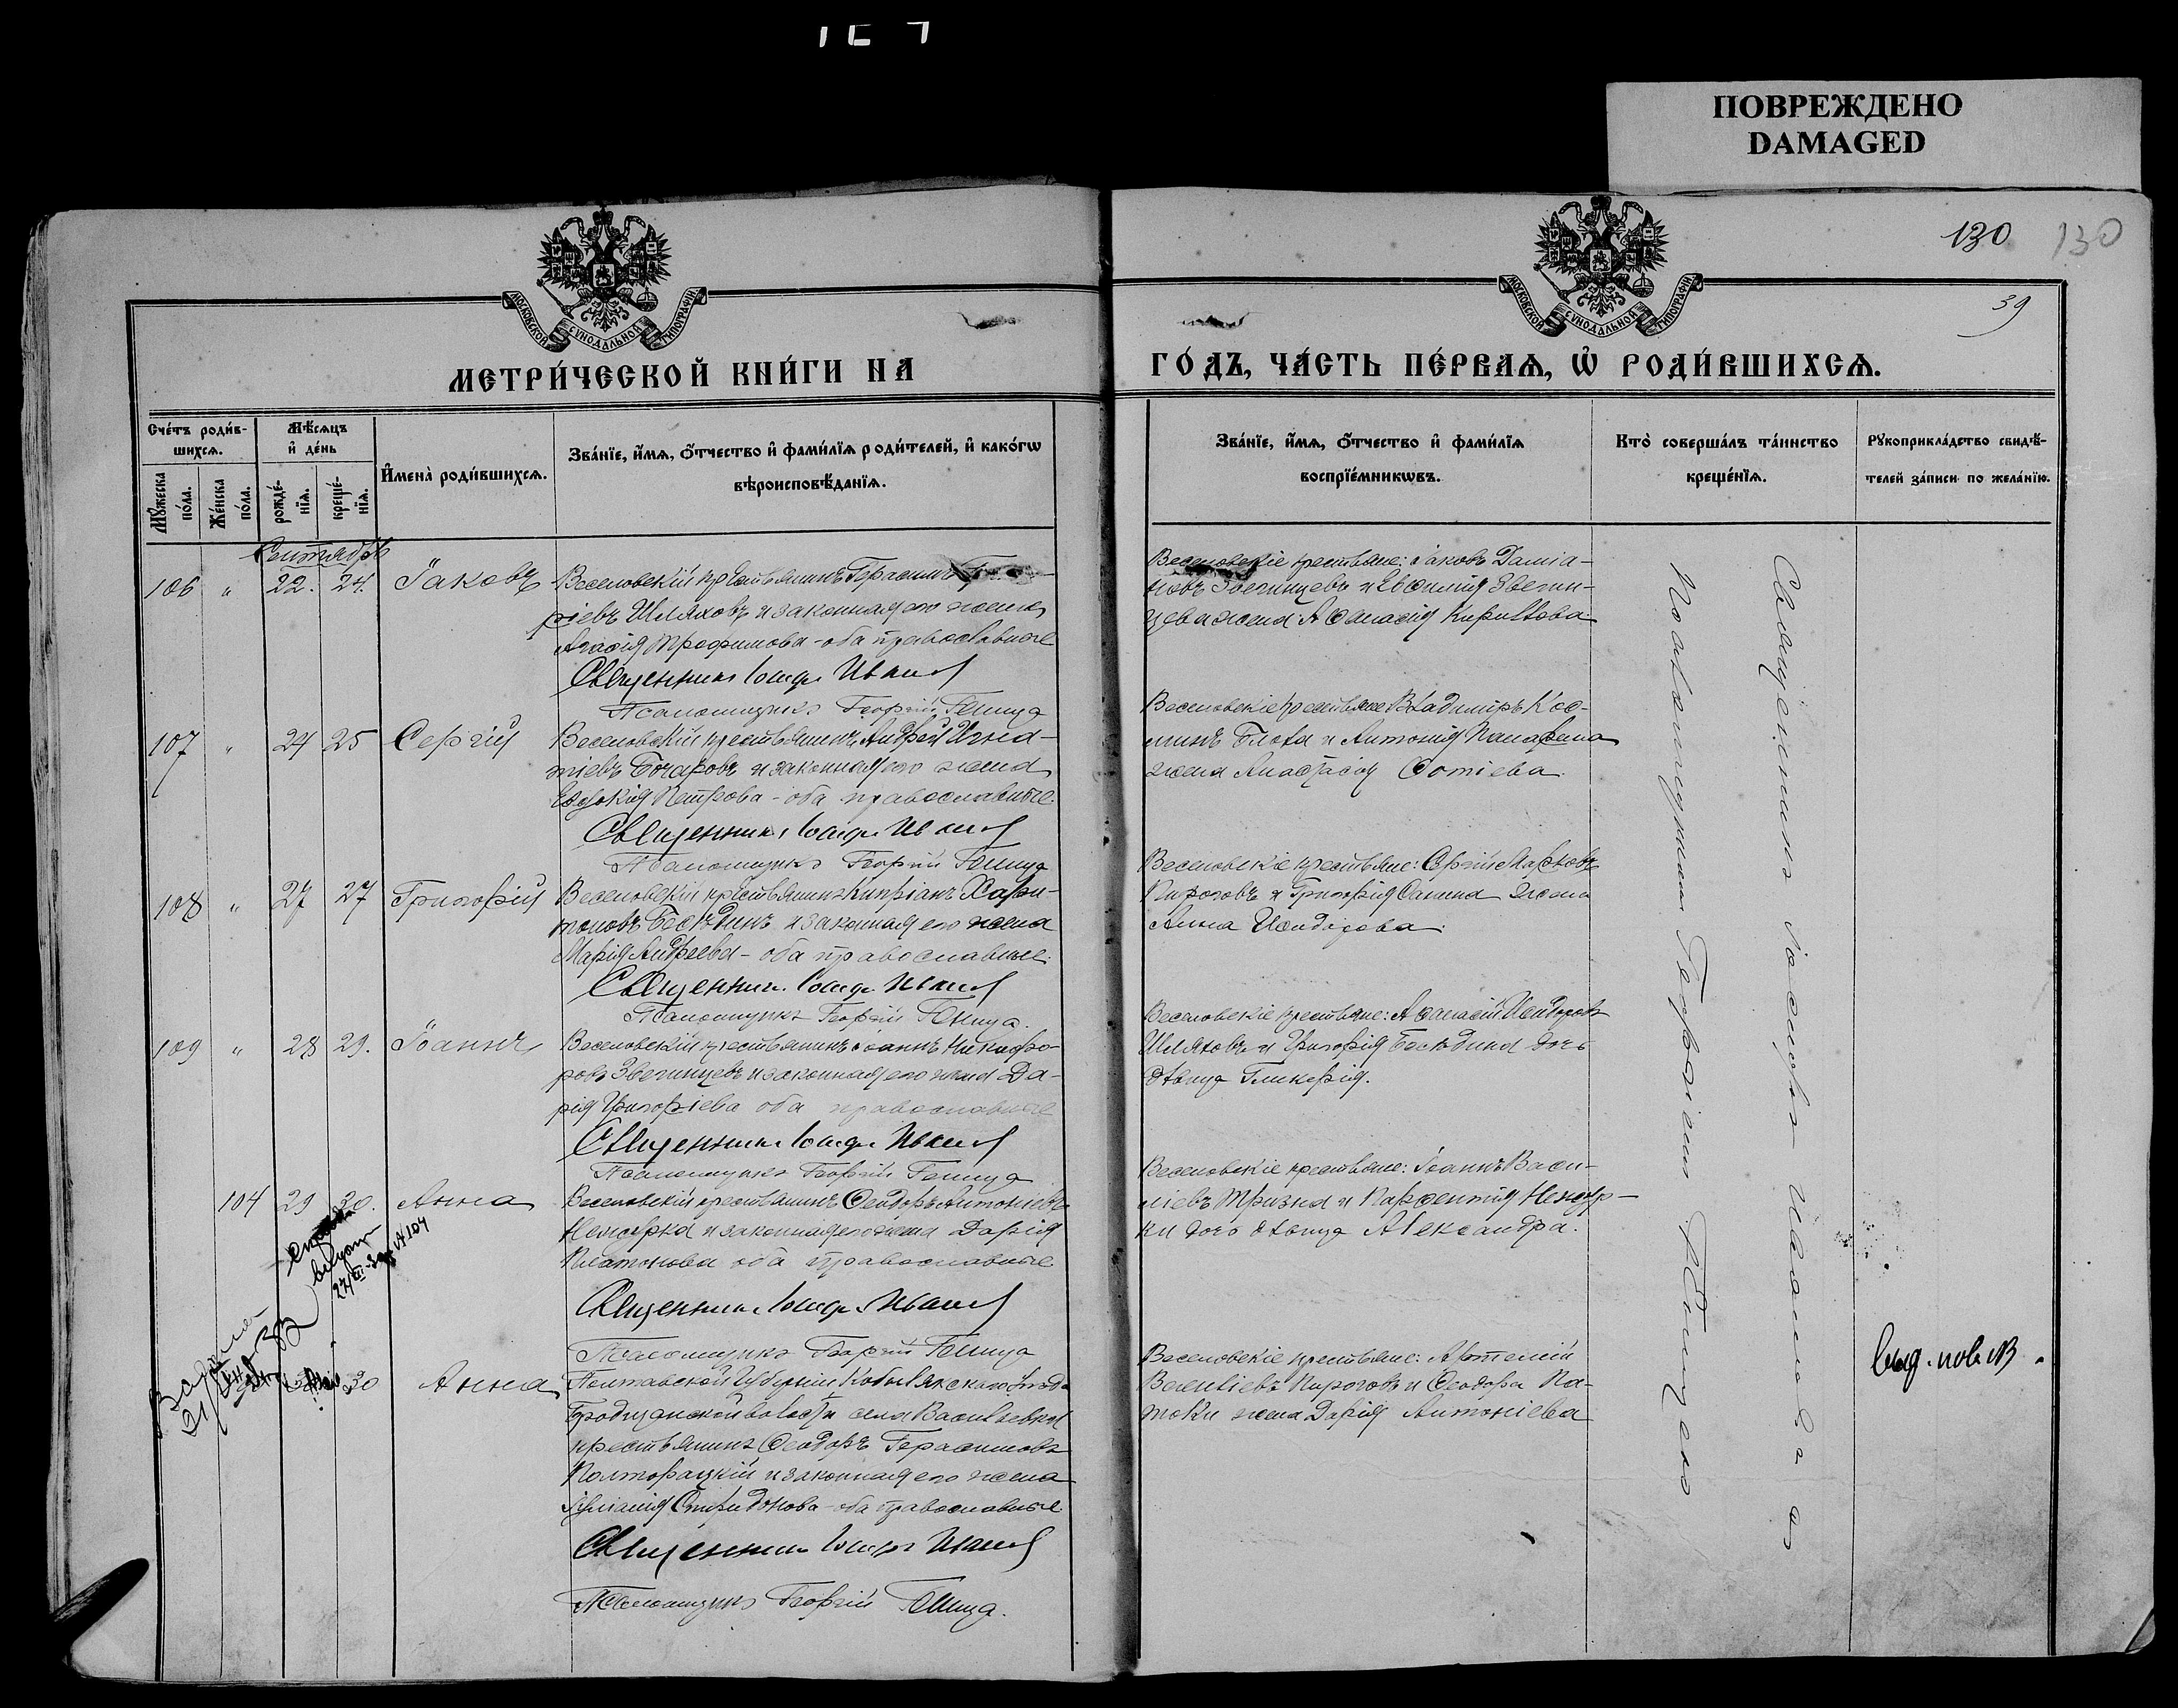 ПОВРЕЖДЕНО
DAMAGED
130 130
39
МОСКОВСКОЙ СѴНОДАЛЬНОЙ ТИПОГРАФІИ
МОСКОВСКОЙ СѴНОДАЛЬНОЙ ТИПОГРАФІИ
МЕТРИ́ЧЕСКОЙ КНИ́ГИ НА
ГО́ДЪ, ЧА́СТЬ ПЕ́РВАѦ, Ѡ҆ РОДИ́ВШИХСѦ.
Сче́тъ роди́в-
шихсѧ.
Мꙋ́жеска
по́ла.
Же́нска
по́ла.
Мѣ́сѧцъ
и҆ де́нь
рожде́-
нїѧ.
креще́-
нїѧ.
И҆мена̀ роди́вшихсѧ.
Зва́нїе, и҆́мѧ, ѻ҆́тчество и҆ фами́лїѧ роди́телей, и҆ како́гѡ
вѣроисповѣ́данїѧ.
Зва́нїе, и҆́мѧ, ѻ҆́тчество и҆ фами́лїѧ
воспрїе́мникѡвъ.
Кто̀ соверша́лъ та́инство
креще́нїѧ.
Рꙋкоприкла́дство свидѣ́-
телей за́писи по жела́нїю.
Сентябрь
106 " 22. 24. Іаковъ Веселовскій крестьянинъ Герасимъ
ріевъ Шляховъ и законная его жена
Агафія Трофимова - оба православные
Священникъ Іосифъ Ивановъ
Псаломщикъ Георгій Геница
Веселовскіе крестьяне: Іаковъ Даміа-
новъ Звегинцевъ и Евфимія Звегин-
цева жена Афанасія Кирилова
107 " 24 25 Сергій Веселовскій крестьянинъ Андрей Игна-
тіевъ Бочаровъ и законная его жена
Евдокія Петрова - оба православные.
Священникъ Іосифъ Ивановъ
Псаломщикъ Георгій Геница
Веселовскіе крестьяне Владиміръ Кос-
минъ и Антонія
жена Анастасія Фотіева.
108 " 27 27 Григорій Веселовскій крестьянинъ Кипріанъ Хари-
тоновъ Бесѣдинъ и законная его жена
Марія Андреева - оба православные.
Священникъ Іосифъ Ивановъ
Псаломщикъ Георгій Геница.
Веселовскіе крестьяне: Сергій Марковъ
Пироговъ и Григорія жена
Анна Исидорова.
109 " 28 29. Іоаннъ Веселовскій крестьянинъ Іоаннъ Никифо-
ровъ Звегинцевъ и законная его жена Да-
рія Григоріева оба православные
Священникъ Іосифъ Ивановъ
Псаломщикъ Георгій Геница
Веселовскіе крестьяне: Афанасій Исидоровъ
Шляховъ и Григорія Бесѣдина дочь
дѣвица Гликерія.
104 29 30. Анна Веселовскій крестьянинъ Феодоръ Антоніевъ
и законная его жена Дарія
Платонова оба православные
Священникъ Іосифъ Ивановъ
Псаломщикъ Георгій Геница
Веселовскіе крестьяне: Іоаннъ Васи-
ліевъ Тризна и Парфентія
ки дочь дѣвица Александра.
30 Анна Полтавской Губерніи Кобылякскаго уѣзда
волости села Васильевки
крестьянинъ Феодоръ Герасимовъ
Полторацкій и законная его жена
Іуліанія Спиридонова - оба православные.
Священникъ Іосифъ Ивановъ
Псаломщикъ Георгій Геница.
Веселовскіе крестьяне: Артемій
Василіевъ Пироговъ и Феодора Па-
токи жена Дарія Антоніева
Священникъ Іосифъ Ивановъ
Псаломщикъ Георгій Геница